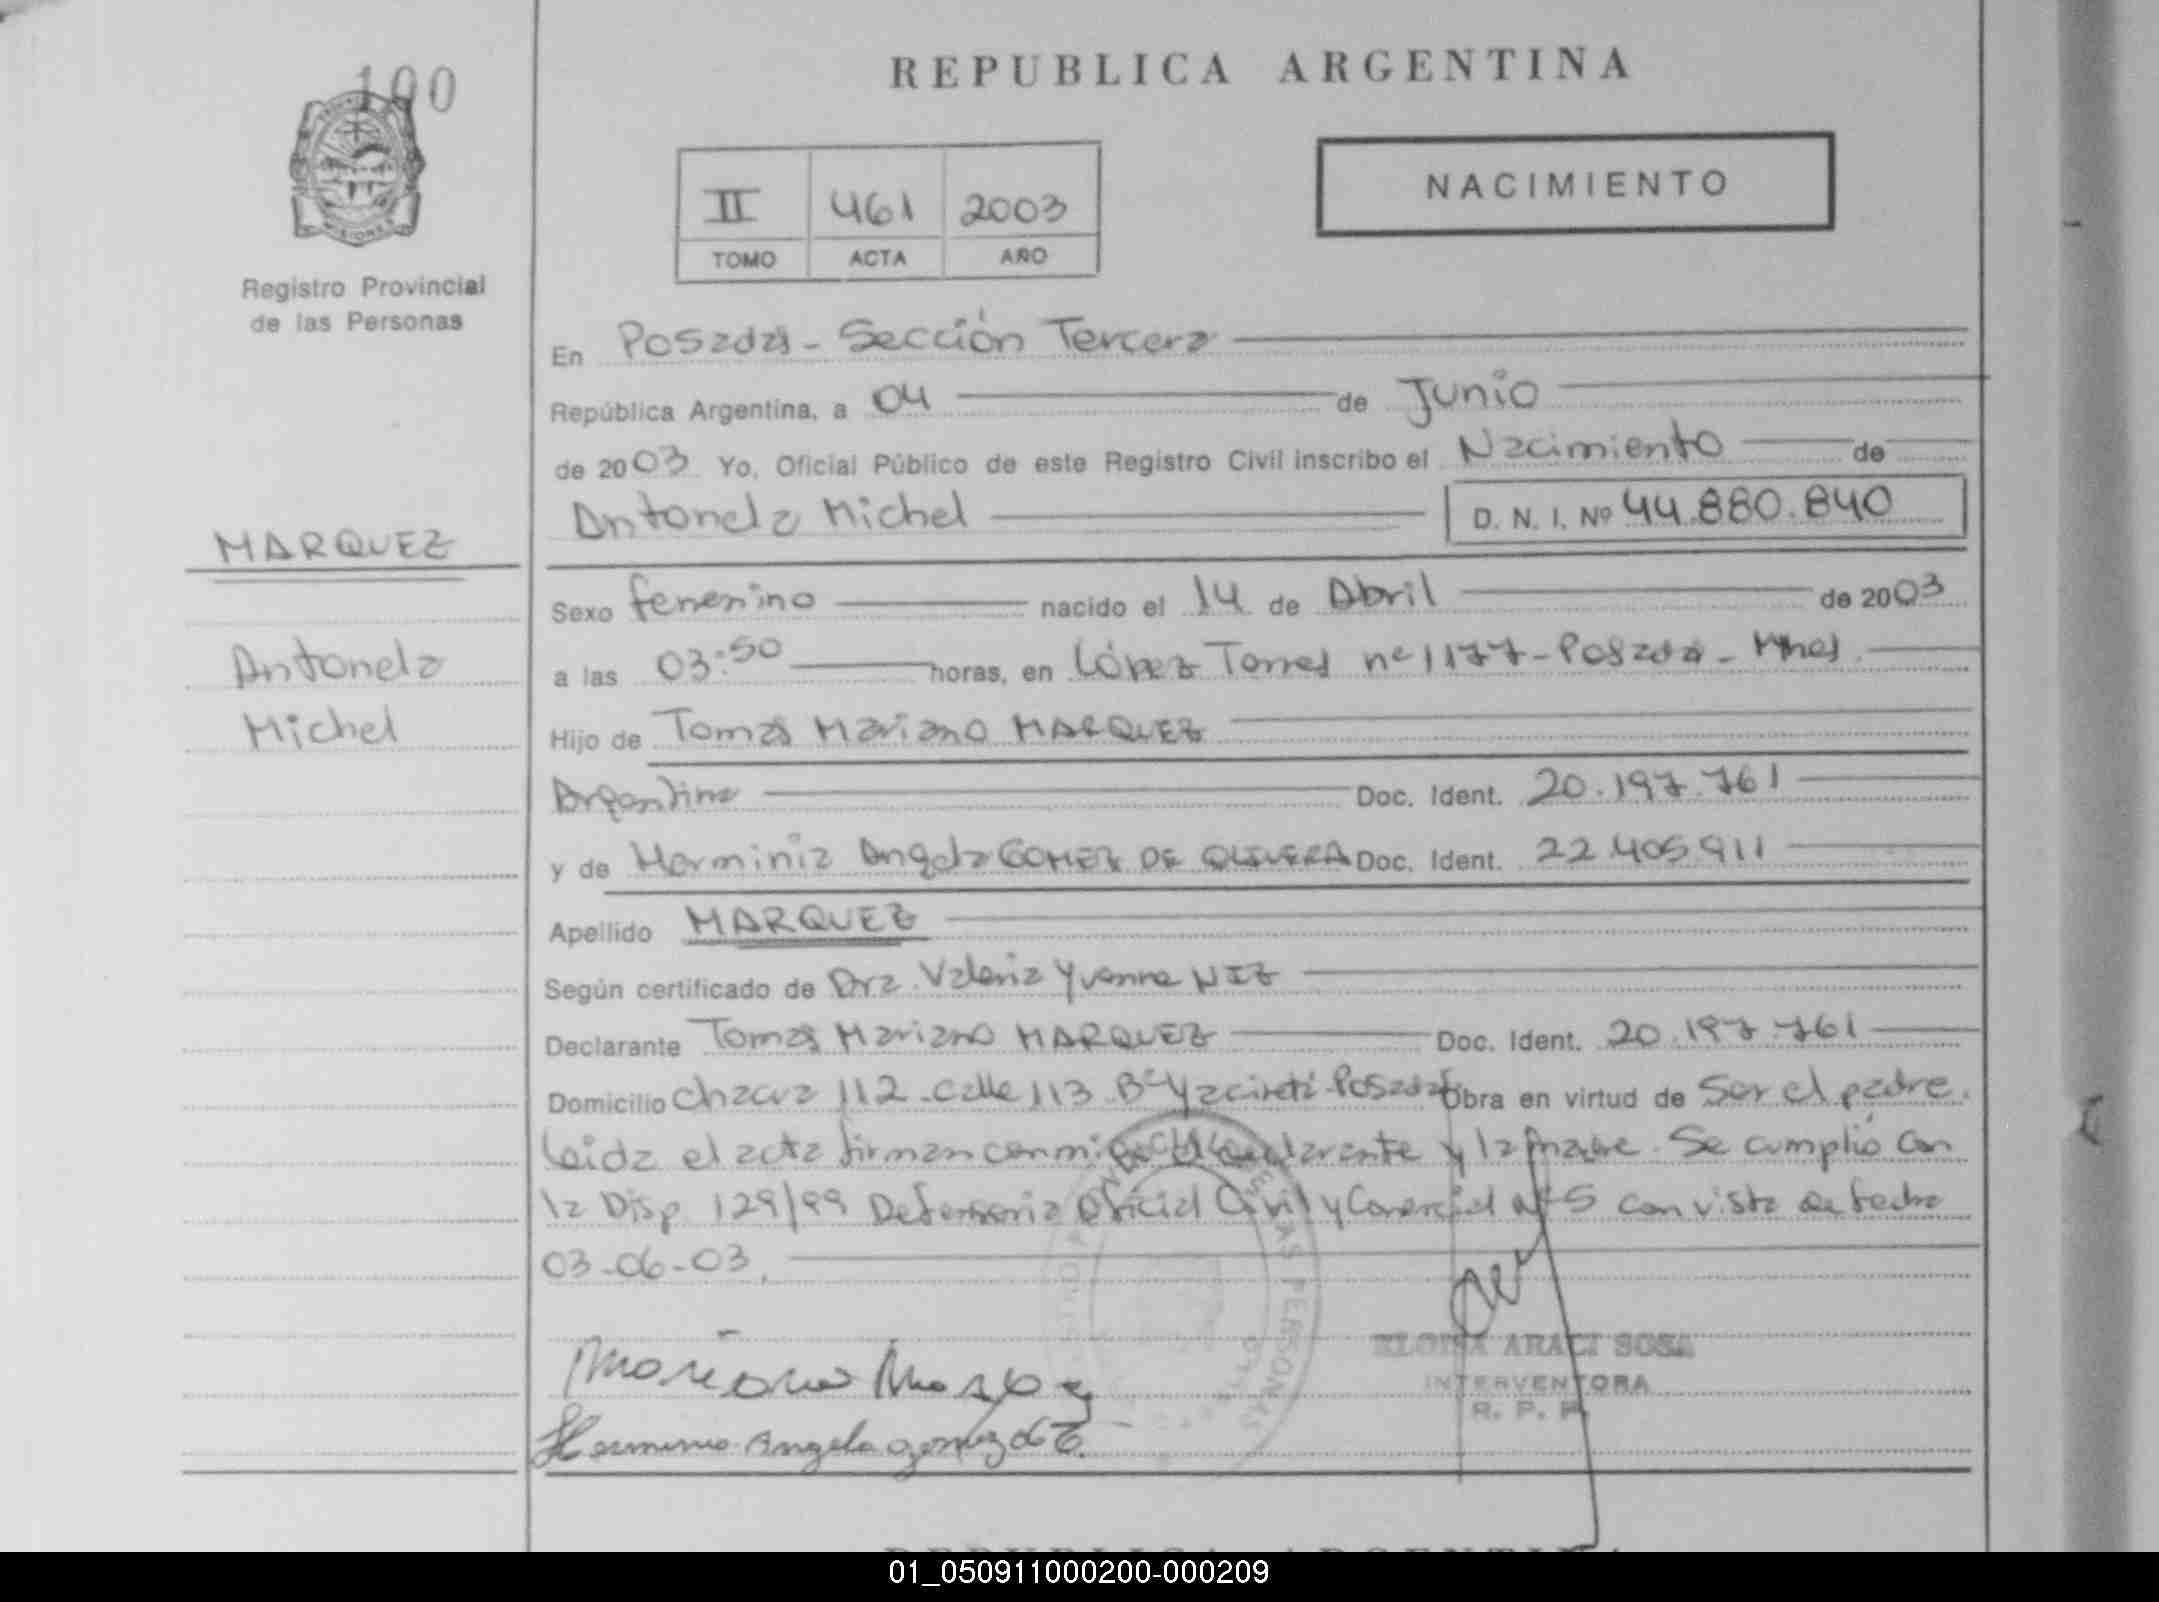 100
REPUBLICA ARGENTINA
II 461 2003
TOMO ACTA AÑO
NACIMIENTO
MISIONES
Registro Provincial
de las Personas
En Posadas - Sección Tercera
República Argentina, a 04 de Junio
de 2003 Yo, Oficial Público de este Registro Civil inscribo el Nacimiento de
Antonela Michel D. N. I. Nº 44.880.840
MARQUEZ
Antonela
Michel
Sexo femenino nacido el 14 de Abril de 2003
a las 03:50 horas, en López Torres nº 1177 - Posadas - Mnes.
Hijo de Tomas Mariano MARQUEZ
Argentina Doc. Ident. 20.197.761
y de Herminia Angela GOMEZ DE OLIVERA Doc. Ident. 22.405.911
Apellido MARQUEZ
Según certificado de Dra. Valeria Yvonne NIZ
Declarante Tomas Mariano MARQUEZ Doc. Ident. 20.197.761
Domicilio Chacra 112 - calle 113 - Bº Yacireti - Posadas Obra en virtud de Ser el padre.
Leida el acta firman conmigo el declarante y la madre. Se cumplió con
la Disp. 129/99 Defensoria Oficial Civil y Comercial Nº 5 con vista de fecha
03-06-03.
Mariano Marquez
Herminia Angela gomez de
ELOISA ARACI SOSA
INTERVENTORA
R. P. P.
PERSONAS
01_050911000200-000209